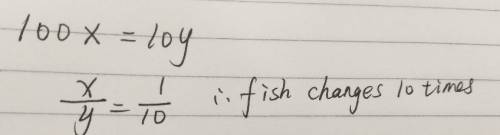 100x = 10y
x/y = 1/10 ∴ fish changes 10 times